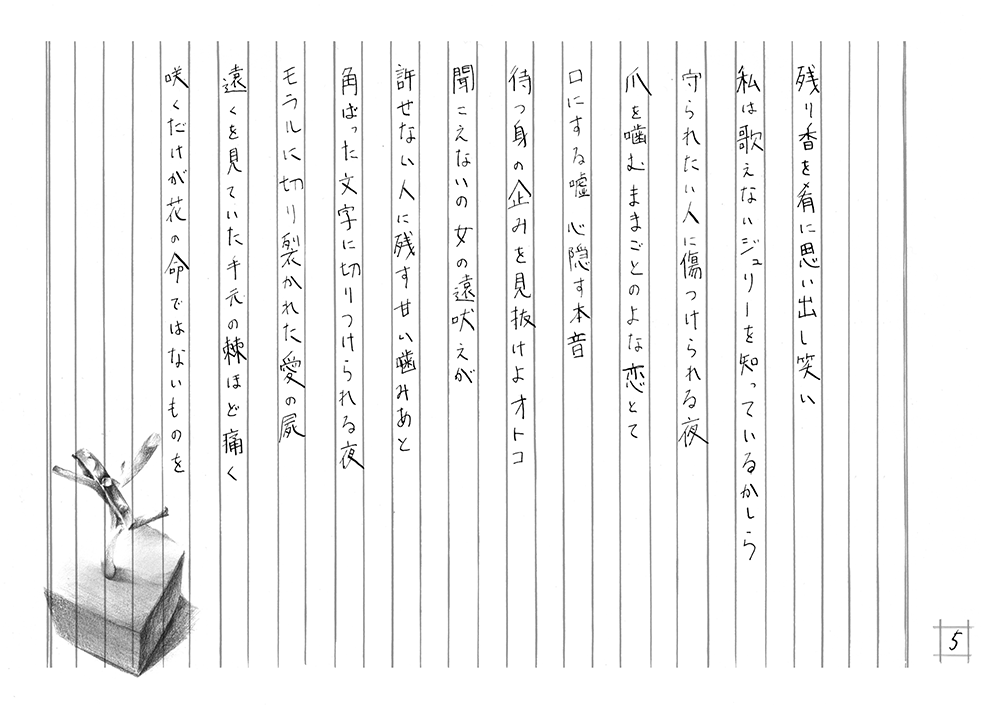 残り香を肴に思い出し笑い
私は歌えないジュリーを知っているかしら
守られたい人に傷つけられる夜
爪を噛むままごとのよな恋とて
口にする嘘 心隠す本音
待つ身の企みを見抜けよオトコ
聞こえないの女の遠吠えが
許せない人に残す甘い噛みあと
角ばった文字に切りつけられる夜
モラルに切り裂かれた愛の屍
遠くを見ていた手元の棘ほど痛く
咲くだけが花の命ではないものを
5